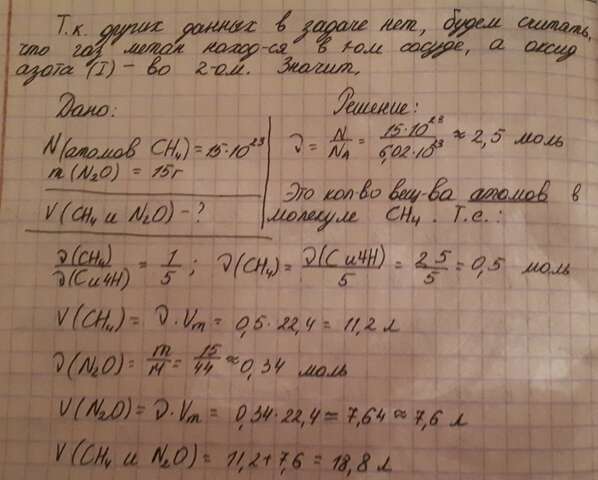 Т.к. других данных в задаче нет, будем считать,
что газ метан наход-ся в I-ом сосуде, а оксид
азота (I) – во 2-ом. Значит,
Дано:
N(атомов CH₄) = 15·10²³
m(N₂O) = 15г
V(CH₄ и N₂O) – ?
Решение:
ν = N/Nₐ = 15·10²³/6,02·10²³ ≈ 2,5 моль
Это кол-во вещ-ва атомов в
молекуле CH₄. Т.е.:
ν(CH₄)/ν(C и 4H) = 1/5; ν(CH₄) = ν(C и 4H)/5 = 2,5/5 = 0,5 моль
V(CH₄) = ν·Vm = 0,5·22,4 = 11,2 л
ν(N₂O) = m/M = 15/44 ≈ 0,34 моль
V(N₂O) = ν·Vm = 0,34·22,4 ≈ 7,64 ≈ 7,6 л
V(CH₄ и N₂O) = 11,2+7,6 = 18,8 л